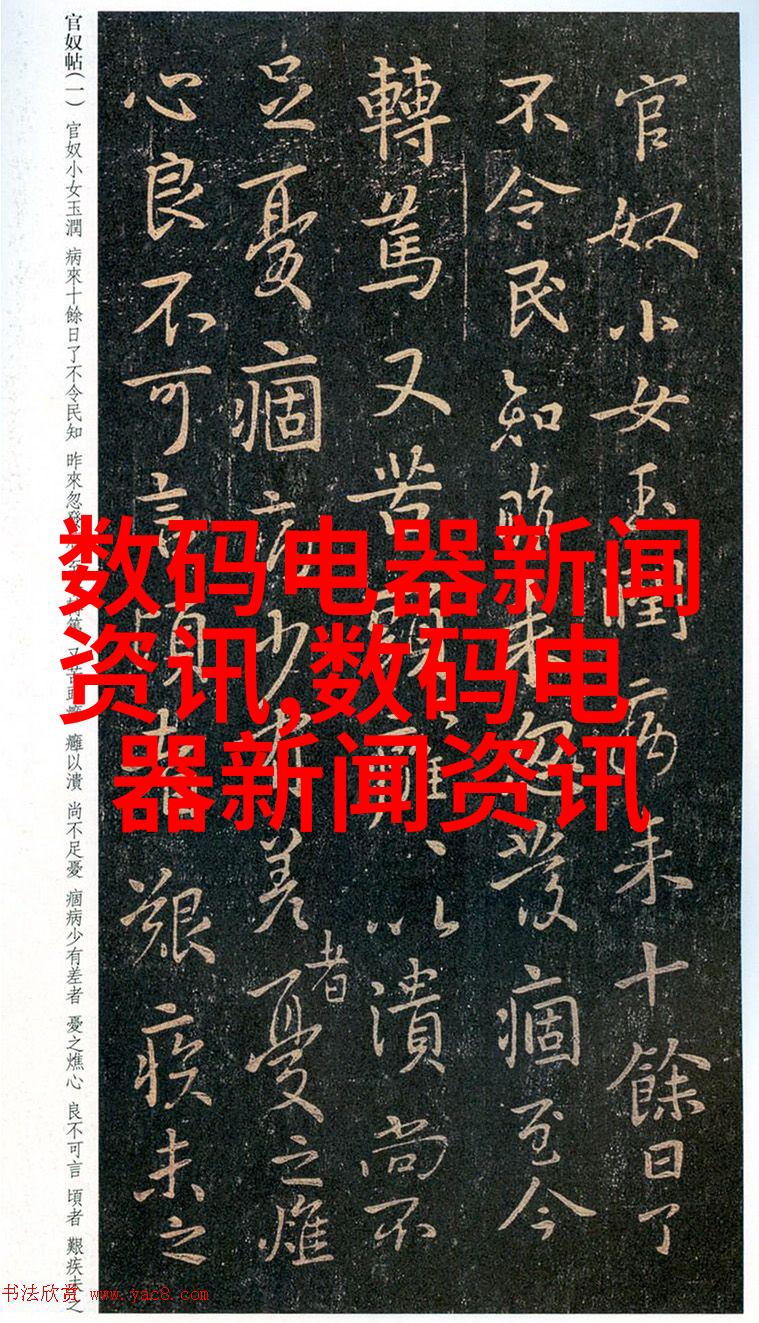 官奴小女玉潤病来十餘日了
不令民知昨来忽發痼至今
轉篤又苦頭癰、以潰尚不
足憂痼病少有差者憂之燋
心良不可言頃者艱疾未之
官奴帖(一) 官奴小女玉潤 病來十餘日了不令民知 昨來忽發 轉篤 又苦頭 癰以潰 尚不足憂 痼病少有差者 憂之燋心 良不可言 頃者 艱疾未之
数码电器新闻
资讯,数码电
器新闻资讯
书法欣赏 www.yac8.com